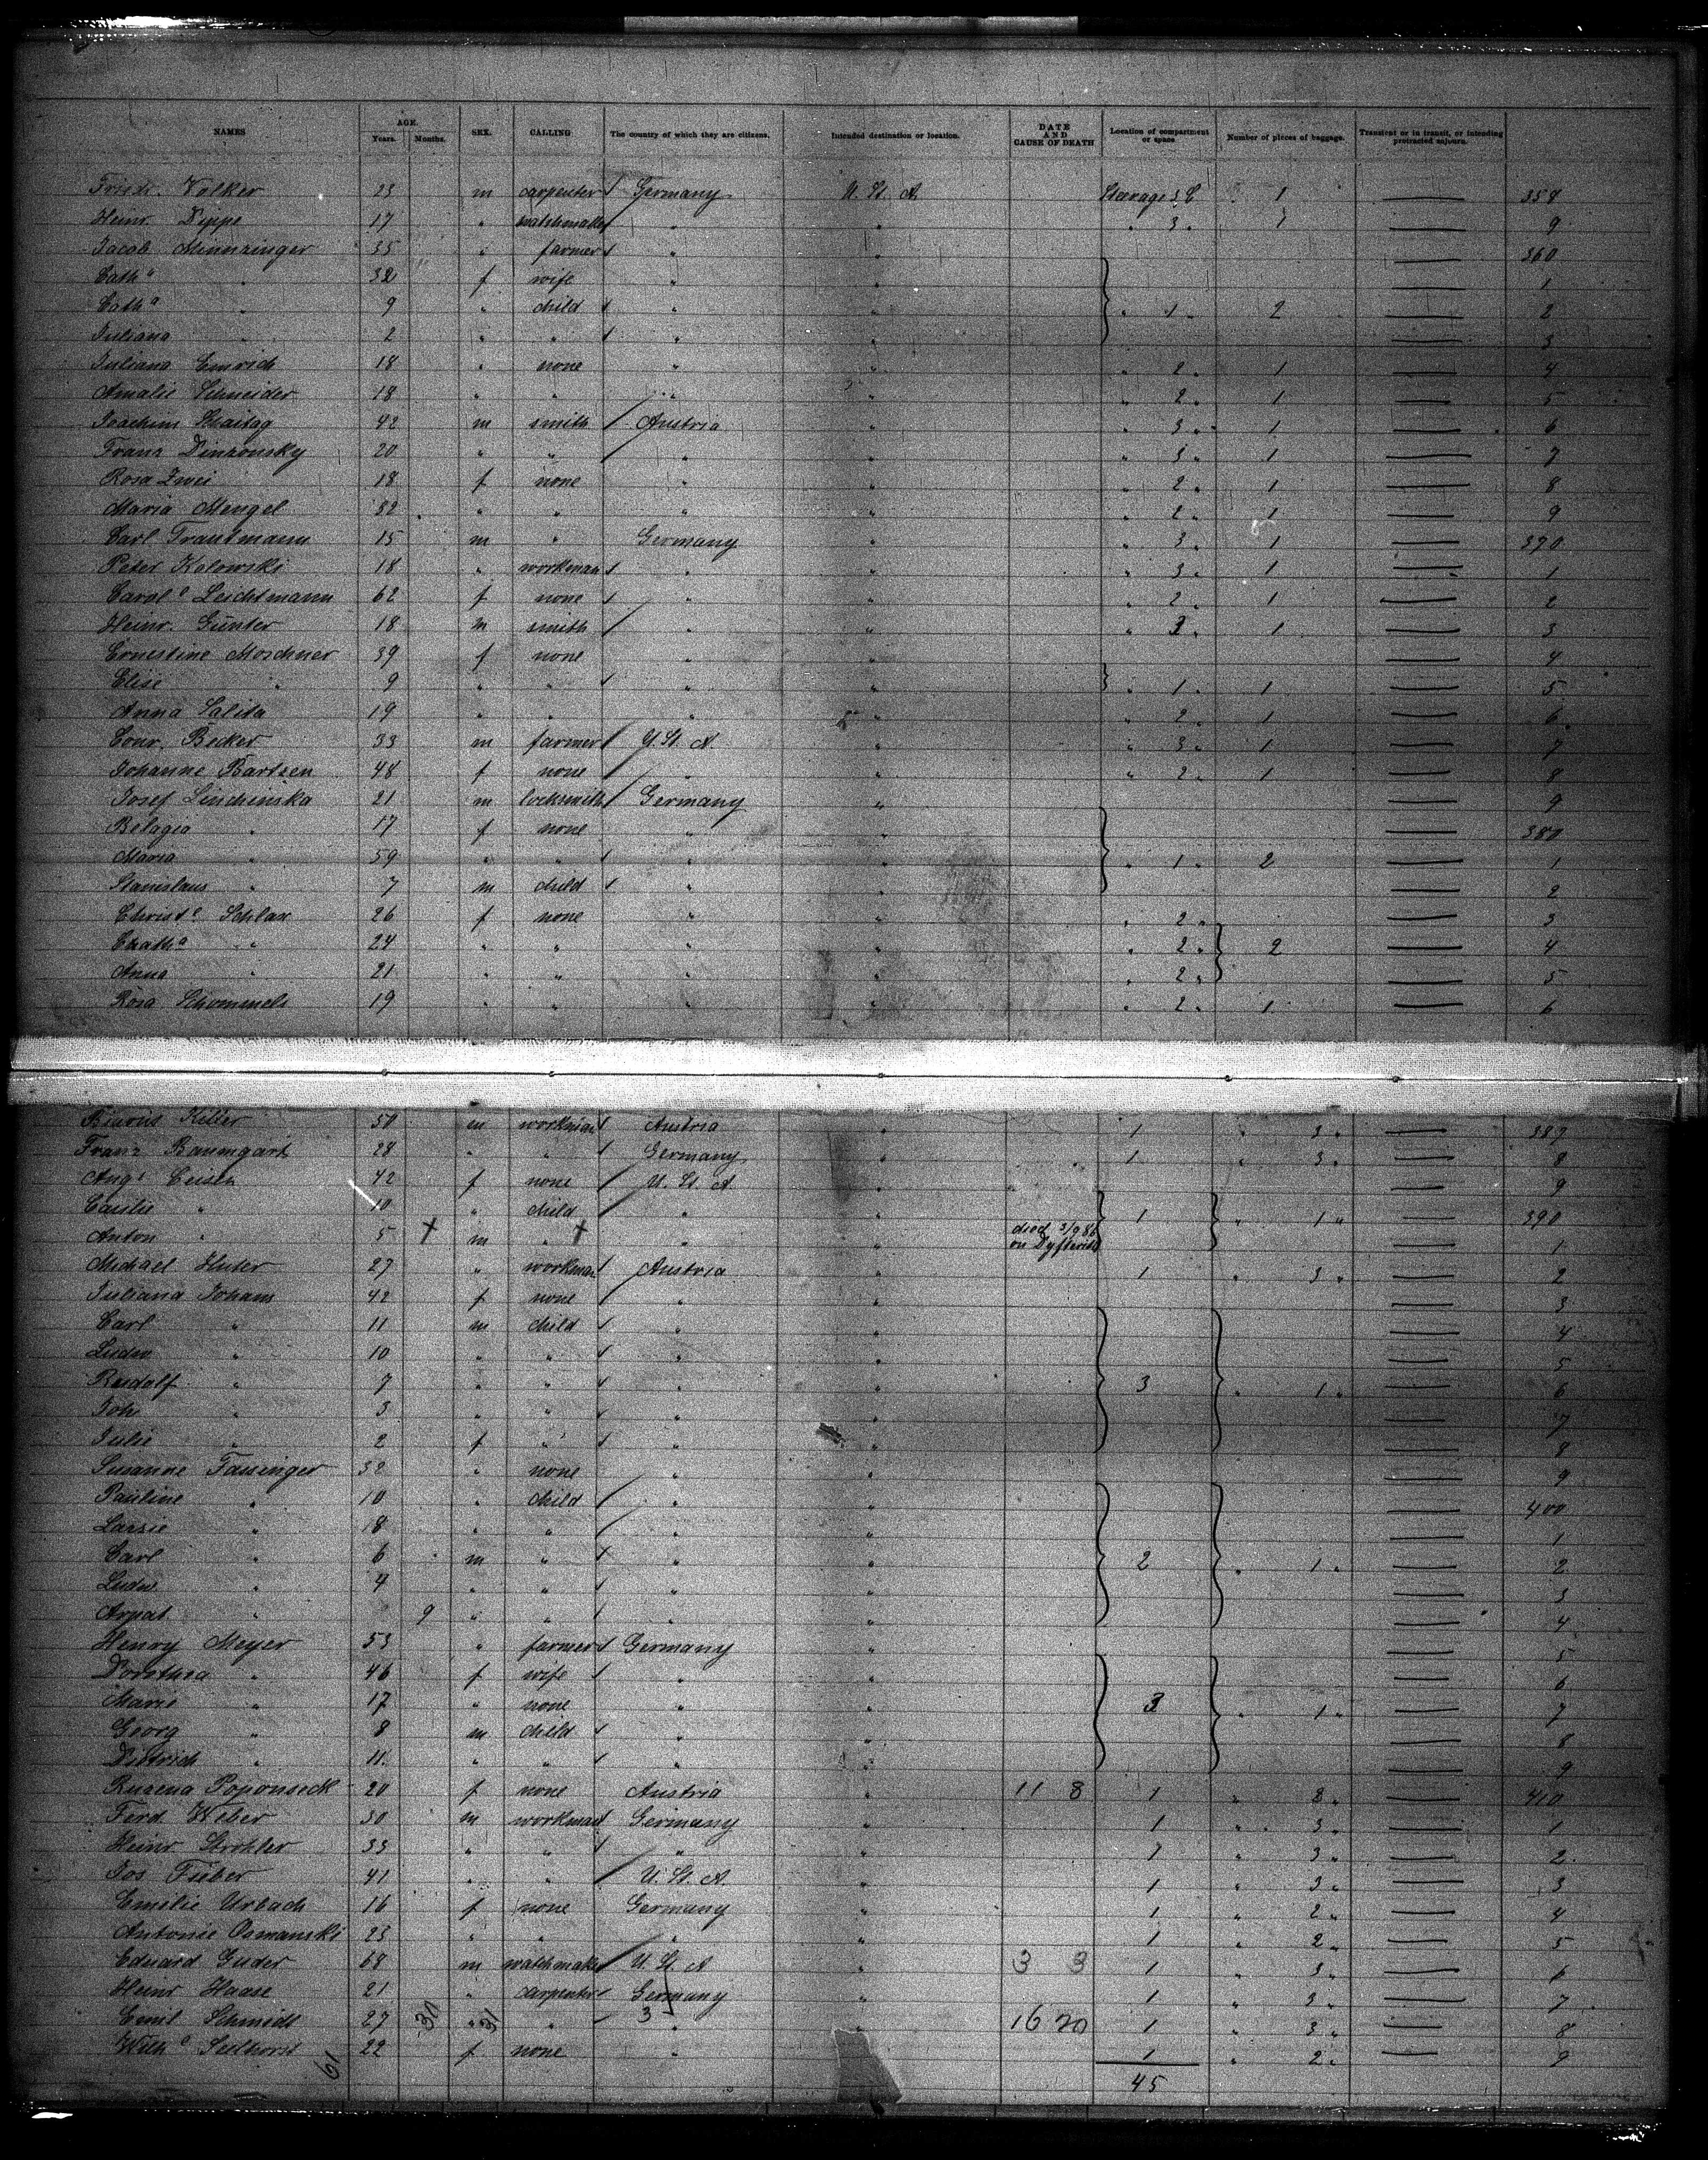 NAMES AGE. Years. Months. SEX. CALLING The country of which they are citizens. Intended destination or location. DATE AND CAUSE OF DEATH Location of compartment or space. Number of pieces of baggage. Transient or in transit, or intending protracted sojourn.
Friedr. Volker 23 m carpenter Germany U. St. A. Steerage 3. C 1 — 358
Heinr. Pippe 17 " watchmaker " " " 3 " 1 — 9
Jacob 35 " farmer " " — 360
Cath a " 32 f wife " " — 1
Cath a " 9 " child " " " 1 " 2 — 2
Juliana " 2 " " " " — 3
Juliana Emrich 18 " none " " " 2 " 1 — 4
Amalie Schneider 18 " " " " " 2 " 1 — 5
Joachim 42 m smith Austria " " 3 " 1 — 6
Franz 20 " " " " " 3 " 1 — 7
Rosa Zwei 18 f none " " " 2 " 1 — 8
Maria Mengel 32 " " " " " 2 " 1 — 9
Carl Trautmann 15 m " Germany " " 3 " 1 — 370
Peter Kolowski 18 " workman " " " 3 " 1 — 1
Carol e Leichtmann 62 f none " " " 2 " 1 — 2
Heinr. Günter 18 m smith " " " 3 " 1 — 3
Ernestine Moschner 39 f none " " — 4
Elise " 9 " " " " " 1 " 1 — 5
Anna Salita 19 " " " " " 2 " 1 — 6
Conr. Becker 33 m farmer U. St. A. " " 3 " 1 — 7
Johanne Bartsen 48 f none " " " 2 " 1 — 8
Josef Linchinska 21 m locksmith Germany " — 9
Belagia " 17 f none " " — 380
Maria " 59 " " " " " 1 " 2 — 1
Stanislaus " 7 m child " " — 2
Christ e Schlax 26 f none " " " 2 " — 3
Chath a " 24 " " " " " 2 " 2 — 4
Anna " 21 " " " " " 2 " — 5
Rosa Schommels 19 " " " " " 2 " 1 — 6
Keller 50 m workman Austria " 1 " 3 " — 387
Franz Baumgart 28 " " Germany " 1 " 3 " — 8
Aug e 42 f none U. St. A. " — 9
" 10 " child " " 1 " 1 " — 390
Anton " 5 + m " + " " died 3/9 86 on Dyfterits — 1
Michael Huter 27 " workman Austria " 1 " 3 " — 2
Juliana Johans 42 f none " " — 3
Carl " 11 m child " " — 4
Ludw " 10 " " " " — 5
Rudolf " 7 " " " " 3 " 1 " — 6
Joh. " 3 " " " " — 7
Julie " 2 f " " " — 8
Susanne Fassinger 32 " none " " — 9
Pauline " 10 " child " " — 400
" 18 " " " " — 1
Carl " 6 m " " " 2 " 1 " — 2
Ludw " 4 " " " " — 3
Arpat " 9 " " " " — 4
Henry Meyer 53 " farmer Germany " — 5
Dorothea " 46 f wife " " — 6
Marie " 17 " none " " 3 " 1 " — 7
Georg " 8 m child " " — 8
Dietrich " 11. " " " " — 9
Ruzena Poponseck 20 f none Austria " 11 8 1 " 2 " — 410
Ferd. Weber 30 m workman Germany " 1 " 3 " — 1
Heinr Strohler 33 " " " " 1 " 3 " — 2
Jos Fuber 41 " " U. St. A. " 1 " 3 " — 3
Emilie Urbach 16 f none Germany " 1 " 2 " — 4
Antonie Osmanski 23 " " " " 1 " 2 " — 5
Eduard Guder 68 m watchmaker U. St. A " 3 3 1 " 3 " — 6
Heinr Haase 21 " carpenter Germany " 1 " 3 " — 7
Emil Schmidt 27 31 " 31 " 3 " " 16 20 1 " 3 " — 8
Wilh e Seelhorst 22 f none " 1 " 2 " — 9
61
45